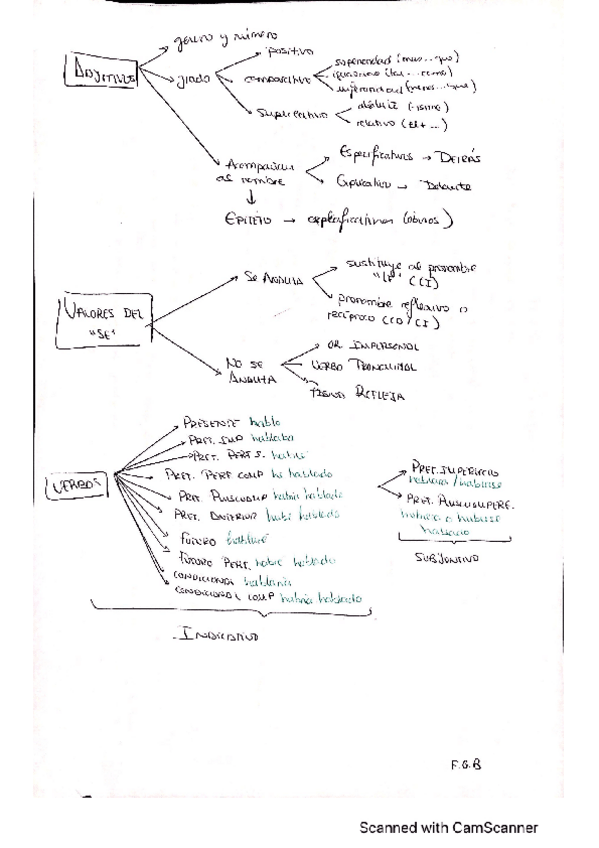 Adjetivos
género y número
grado
positivo
comparativo
superioridad (más...que)
igualdad (tan...como)
inferioridad (menos...que)
superlativo
absoluto (-ísimo)
relativo (El+...)
Acompañan
al nombre
Especificativos → DETRÁS
Explicativo → Delante
EPÍTETO → explicativos (obvios)
VALORES DEL
"SE"
Se ANALIZA
sustituye al pronombre
"le" (CI)
pronombre reflexivo o
recíproco (CD/CI)
NO SE
ANALIZA
OR IMPERSONAL
VERBO PRONOMINAL
PASIVA REFLEJA
VERBOS
PRESENTE hablo
PRET. IMP hablaba
PRET. PERF S. hablé
PRET. PERF COMP he hablado
PRET. PLUSCUAMP había hablado
PRET. ANTERIOR hube hablado
FUTURO hablaré
FUTURO PERF. habré hablado
CONDICIONAL hablaría
CONDICIONAL COMP habría hablado
INDICATIVO
PRET. IMPERFECTO
hablara/hablase
PRET. PLUSCUAMPERF.
hubiera o hubiese
hablado
SUBJUNTIVO
F.G.B
Scanned with CamScanner